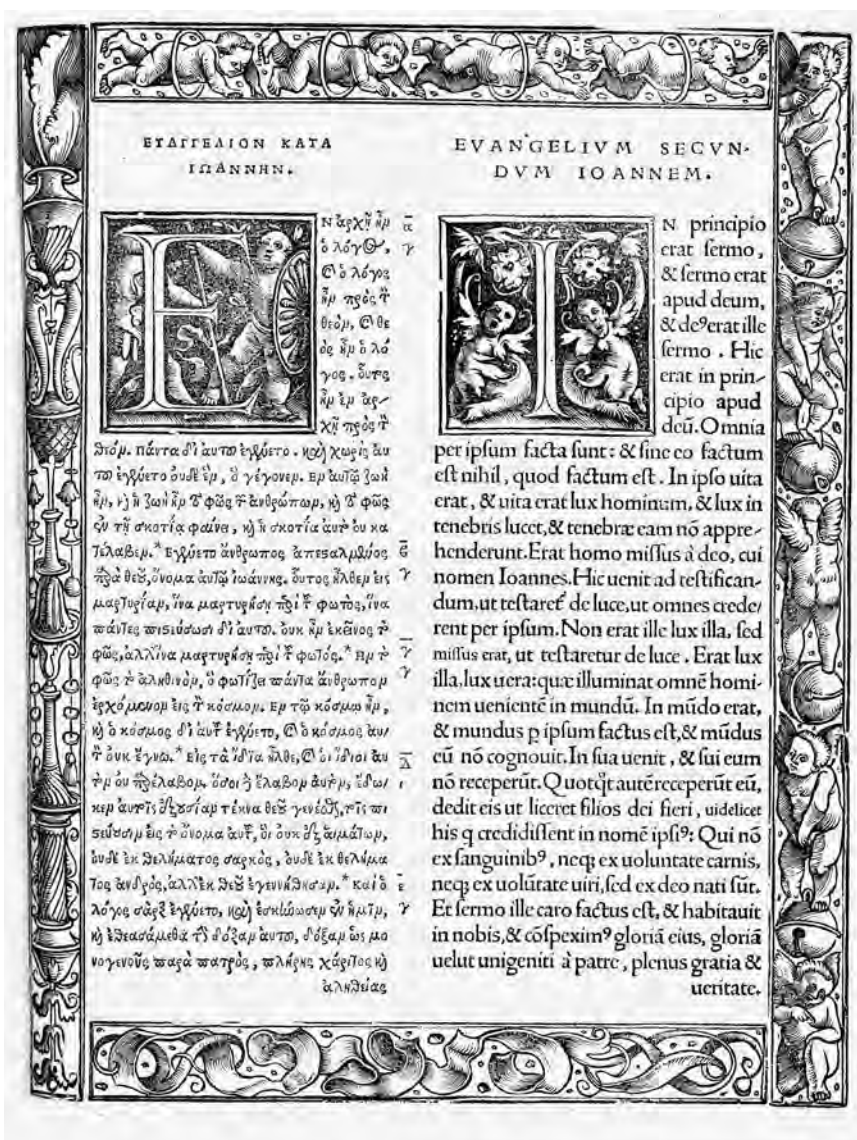 ΕΥΑΓΓΕΛΙΟΝ ΚΑΤΑ
ΙΩΑΝΝΗΝ.
ΕΝ ἀρχῇ ἦν
ὁ λόγος,
καὶ ὁ λόγος
ἦν πρὸς τὸν
θεόν, καὶ θε
ὸς ἦν ὁ λό
γος. οὗτος
ἦν ἐν ἀρ-
χῇ πρὸς τὸν
θεόν. πάντα δι' αυτοῦ ἐγένετο. καὶ χωρὶς αυ
τοῦ ἐγένετο ουδὲ ἕν, ὃ γέγονεν. Εν αυτῷ ζωὴ
ἦν, καὶ ἡ ζωὴ ἦν τὸ φῶς τῶν ανθρώπων, καὶ τὸ φῶς
ἐν τῇ σκοτία φαίνει, καὶ ἡ σκοτία αυτὸ ου κα
τέλαβεν.* Εγένετο ἄνθρωπος ἀπεσαλμένος
παρὰ θεοῦ, ὄνομα αυτῷ ἰωάννης. οὗτος ἦλθεν εἰς
μαρτυρίαν, ἵνα μαρτυρήσῃ περὶ τοῦ φωτὸς, ἵνα
πάντες πιστεύσωσι δι' αυτοῦ. ουκ ἦν ἐκεῖνος τὸ
φῶς, αλλ' ἵνα μαρτυρήσῃ περὶ τοῦ φωτός.* Ην τὸ
φῶς τὸ αληθινὸν, ὃ φωτίζει πάντα ἄνθρωπον
ἐρχόμενον εἰς τὸν κόσμον. Εν τῷ κόσμω ἦν,
καὶ ὁ κόσμος δι' αυτοῦ ἐγένετο, καὶ ὁ κόσμος αυ/
τὸν ουκ ἔγνω.* Εἰς τὰ ἴδια ἦλθε, καὶ οἱ ἴδιοι αυ
τὸν ου παρέλαβον. ὅσοι δὲ ἔλαβον αυτὸν, ἔδω/
κεν αυτοῖς ἐξουσίαν τέκνα θεοῦ γενέσθαι, τοῖς πι
στεύουσιν εἰς τὸ ὄνομα αυτοῦ, οἳ ουκ ἐξ αἱμάτων,
ουδὲ ἐκ θελήματος σαρκὸς, ουδὲ ἐκ θελήμα
τος ανδρὸς, αλλ' ἐκ θεοῦ ἐγεννήθησαν.* καὶ ὁ
λόγος σὰρξ ἐγένετο, καὶ ἐσκήνωσεν ἐν ἡμῖν,
καὶ ἐθεασάμεθα τὴν δόξαν αυτοῦ, δόξαν ὡς μο
νογενοῦς παρὰ πατρὸς, πλήρης χάριτος καὶ
ἀληθείας
EVANGELIVM SECVN-
DVM IOANNEM.
IN principio
erat sermo,
& sermo erat
apud deum,
& deꝰ erat ille
sermo. Hic
erat in prin-
cipio apud
deū. Omnia
per ipsum facta sunt: & sine eo factum
est nihil, quod factum est. In ipso uita
erat, & uita erat lux hominum, & lux in
tenebris lucet, & tenebræ eam nō appre-
henderunt. Erat homo missus à deo, cui
nomen Ioannes. Hic uenit ad testifican-
dum, ut testaret᷑ de luce, ut omnes crede/
rent per ipsum. Non erat ille lux illa, sed
missus erat, ut testaretur de luce. Erat lux
illa, lux uera: quæ illuminat omnē homi-
nem uenientē in mundū. In mūdo erat,
& mundus p ipsum factus est, & mūdus
eū nō cognouit. In sua uenit, & sui eum
nō receperūt. Quotqͭ autē receperūt eū,
dedit eis ut liceret filios dei fieri, uidelicet
his q credidissent in nomē ipsiꝰ: Qui nō
ex sanguinibꝰ, neqꝫ ex uoluntate carnis,
neqꝫ ex uolūtate uiri, sed ex deo nati sūt.
Et sermo ille caro factus est, & habitauit
in nobis, & cōspeximꝰ gloriā eius, gloriā
uelut unigeniti à patre, plenus gratia &
ueritate.